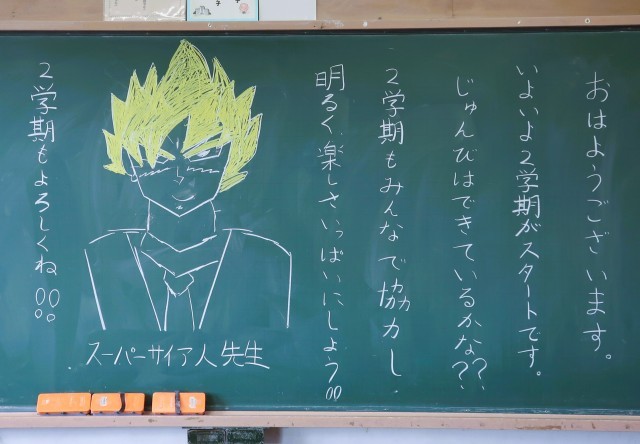 おはようございます。
いよいよ2学期がスタートです。
じゅんびはできているかな??
2学期もみんなで協力し、
明るく、楽しさいっぱいにしよう!!
2学期もよろしくね!!
スーパーサイア人先生